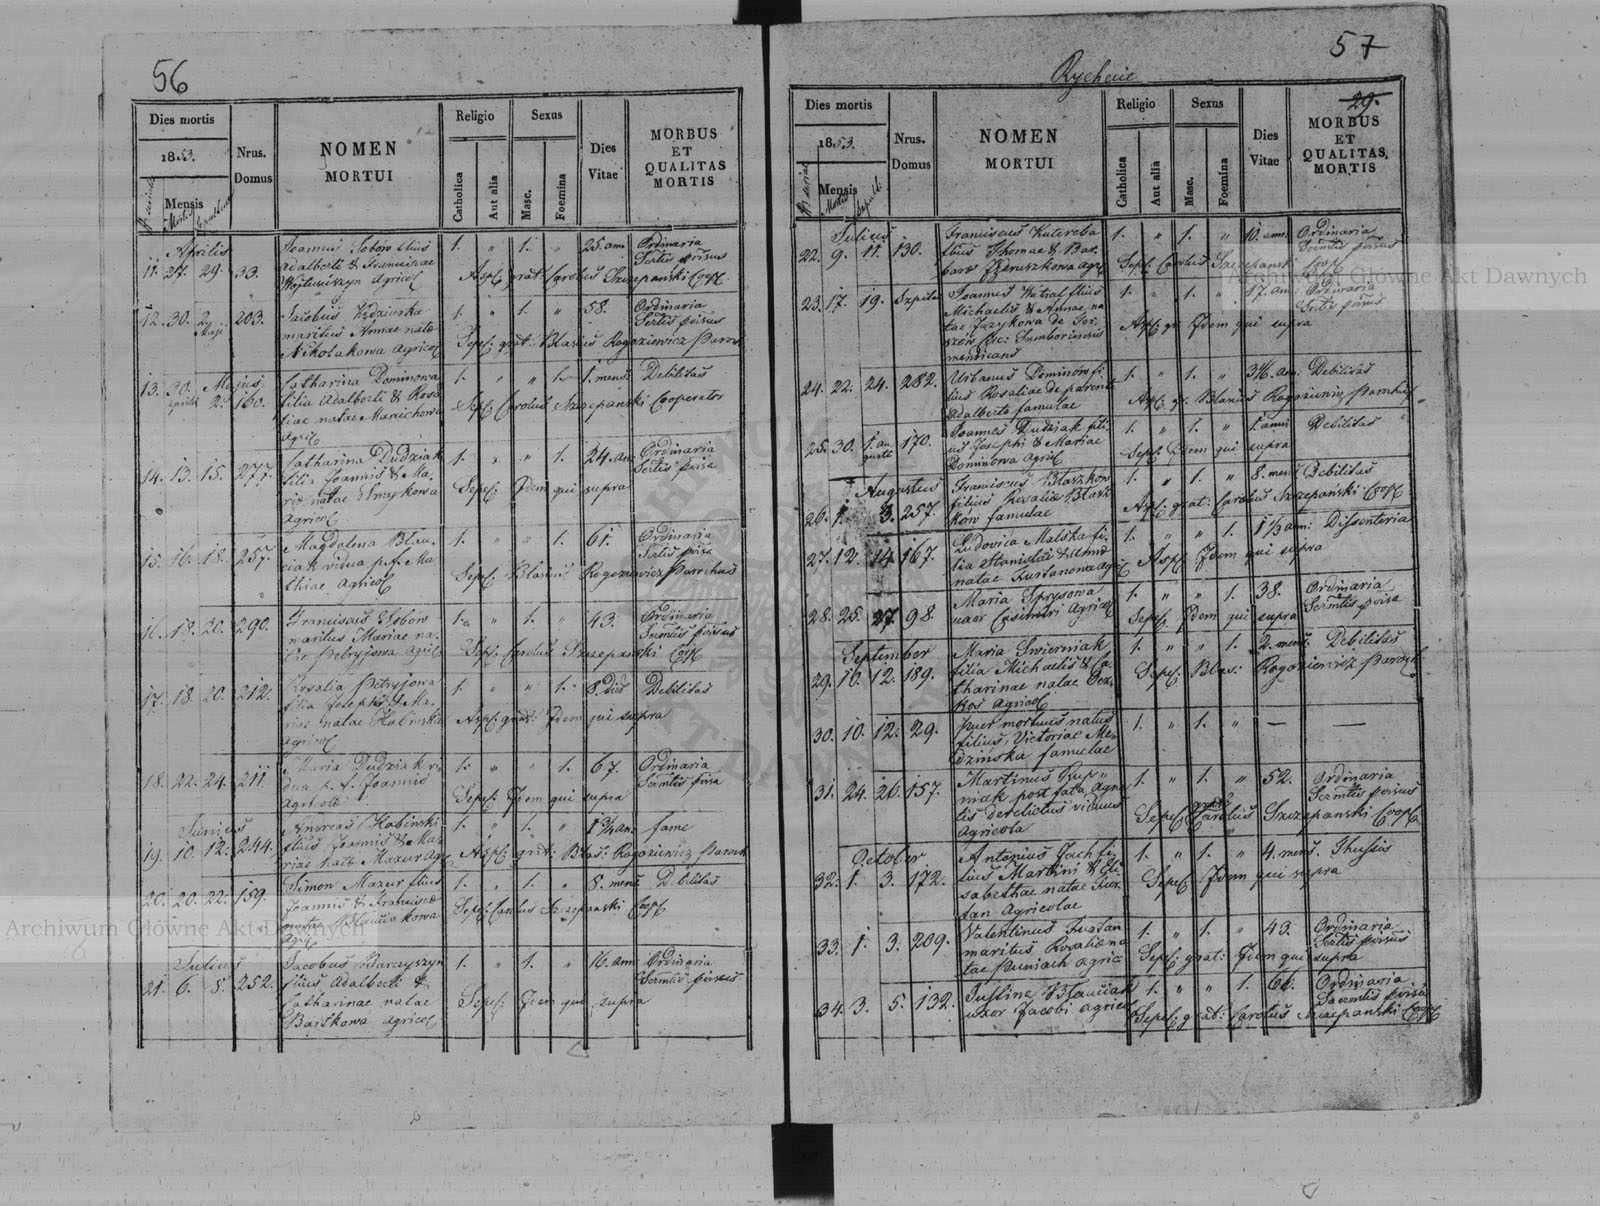 56
Dies mortis
1853.
Mensis
Nrus.
Domus
NOMEN
MORTUI
Religio
Catholica
Aut alia
Sexus
Masc.
Foemina
Dies
Vitae
MORBUS
ET
QUALITAS
MORTIS
Aprilis
11. 27. 29. 33.
Joannes Sobów filius
Adalberti & Franciscae
Agricol
1. " 1. " 25. ann
Ordinaria
Asp: grat: Carolus Szczepański Coop
12. 30. 2 Maji 203.
Jacobus
maritus Annae natae
Nikolakowa Agricol
1. " 1. " 58.
Ordinaria
Sepel: grat: Blasius Rogoziewicz Paroch
Majus
13. 30. Aprilis 2. 160.
Catharina Dominowa
filia Adalberti & Rosa
liae natae Marichowa
Agricol
1. " " 1. 1. mens. Debilitas
Sepel: Carolus Szczepański Cooperator
14. 13. 15. 277.
Catharina Dudziak
filia Joannis & Ma
riae natae Smykowa
Agricol
1. " " 1. 24. ann
Ordinaria
Sepel: Idem qui supra
15. 16. 18. 257.
Magdalena Błau
ciak vidua p. f. Ma
thiae Agricol
1. " " 1. 61.
Ordinaria
Sepel: Blasius Rogoziewicz Parochus
16. 18. 20. 290.
Franciscus Sobów
maritus Mariae na
tae Petryjowa Agricol
1. " 1. " 43.
Ordinaria
Sepel: Carolus Szczepański Coop
17. 18. 20. 212.
Rosalia Petryjowa
filia Josephi & Ma
riae natae Habinska
Agricol
1. " " 1. 8. Dies Debilitas
Asp: grat: Idem qui supra
18. 22. 24. 211
Maria Dudziak vi
dua p. f. Joannis
Agricolae
1. " " 1. 67.
Ordinaria
Sepel: Idem qui supra
Junius
19. 10. 12. 244.
Andreas Habinski
filius Joannis & Ma
riae natae Mazur Agr
1. " 1. " 1 3/4 an. fame
Asp: grat: Blas: Rogoziewicz Paroch
20. 20. 22. 159.
Simon Mazur filius
Joannis & Franciscae
natae Błauciakowa
Agric
1. " 1. " 8. mens Debilitas
Sepel: Carolus Szczepanski Coop
Julius
21. 6. 8. 252.
Jacobus Barczyszyn
filius Adalberti &
Catharinae natae
Baiskowa Agricol
1. " 1. " 16. ann
Ordinaria
Sepel: Idem qui supra
57
29.
Dies mortis
1853.
Mensis
Nrus.
Domus
NOMEN
MORTUI
Religio
Catholica
Aut alia
Sexus
Masc.
Foemina
Dies
Vitae
MORBUS
ET
QUALITAS
MORTIS
Julius
22. 9. 11. 130.
Franciscus Kutereba
filius Thomae & Bar
barae Agric
1. " 1. " 10. ann.
Ordinaria
Sepel: Carolus Szczepanski Coop
23. 17. 19. Szpital
Joannes Watral filius
Michaelis & Annae na
tae Juzykowa de
Circ: Samboriensis
mendicans
1. " 1. " 17. an.
Ordinaria
Asp: gr: Idem qui supra
24. 22. 24. 282.
Urbanus Dominów fi
lius Rosaliae de parente
Adalberto famulae
1. " 1. " 3 1/2. an. Debilitas
Asp: gr: Blasius Rogoziewicz Paroch
25. 30. 1. augusti 170.
Joannes Dudziak fili
us Josephi & Mariae
Dominowa Agricol
1. " 1. " 1. anni Debilitas
Sepel: Idem qui supra
Augustus
26. 1. 3. 257.
Franciscus Błaszków
filius Rosaliae Błasz
ków famulae
1. " 1. " 8. mens Debilitas
Asp: grat: Carolus Szczepański Coop
27. 12. 14. 167.
Ludovica Malska fi
lia Stanislai & Annae
natae Furtanowa Agric
1. " " 1. 1 1/2 ann: Dissenteria
Asp: Idem qui supra
28. 25. 27. 98.
Maria Sprysowa
uxor Casimiri Agricol
1. " " 1. 38.
Ordinaria
Sepel: Idem qui supra
September
29. 10. 12. 189.
Maria Swierniak
filia Michaelis & Ca
tharinae natae
Agricol
1. " " 1. 2. mens. Debilitas
Sepel: Blas: Rogoziewicz Paroch
30. 10. 12. 29.
Puer mortuus natus
filius Victoriae Me
dzinska famulae
1. " 1. " — —
31. 24. 26. 157.
Martinus Krup
niak post fata Agne
tis derelictus viduus
Agricola
1. " 1. " 52.
Ordinaria
Sepel: grat: Carolus Szczepanski Coop
October
32. 1. 3. 172.
Antonius Jach fi
lius Martini & Eli
sabethae natae Fur
tan Agricolae
1. " 1. " 4. mens. Thussis
Sepel: Idem qui supra
33. 1. 3. 209.
Valentinus Furtan
maritus Rosaliae na
tae Puniach Agric
1. " 1. " 43.
Ordinaria
Sepel: grat: Idem qui supra
34. 3. 5. 132.
Justina Błauciak
uxor Jacobi Agricol
1. " " 1. 66.
Ordinaria
Sepel: grat: Carolus Szczepanski Coop
Archiwum Główne Akt Dawnych
Archiwum Główne Akt Dawnych